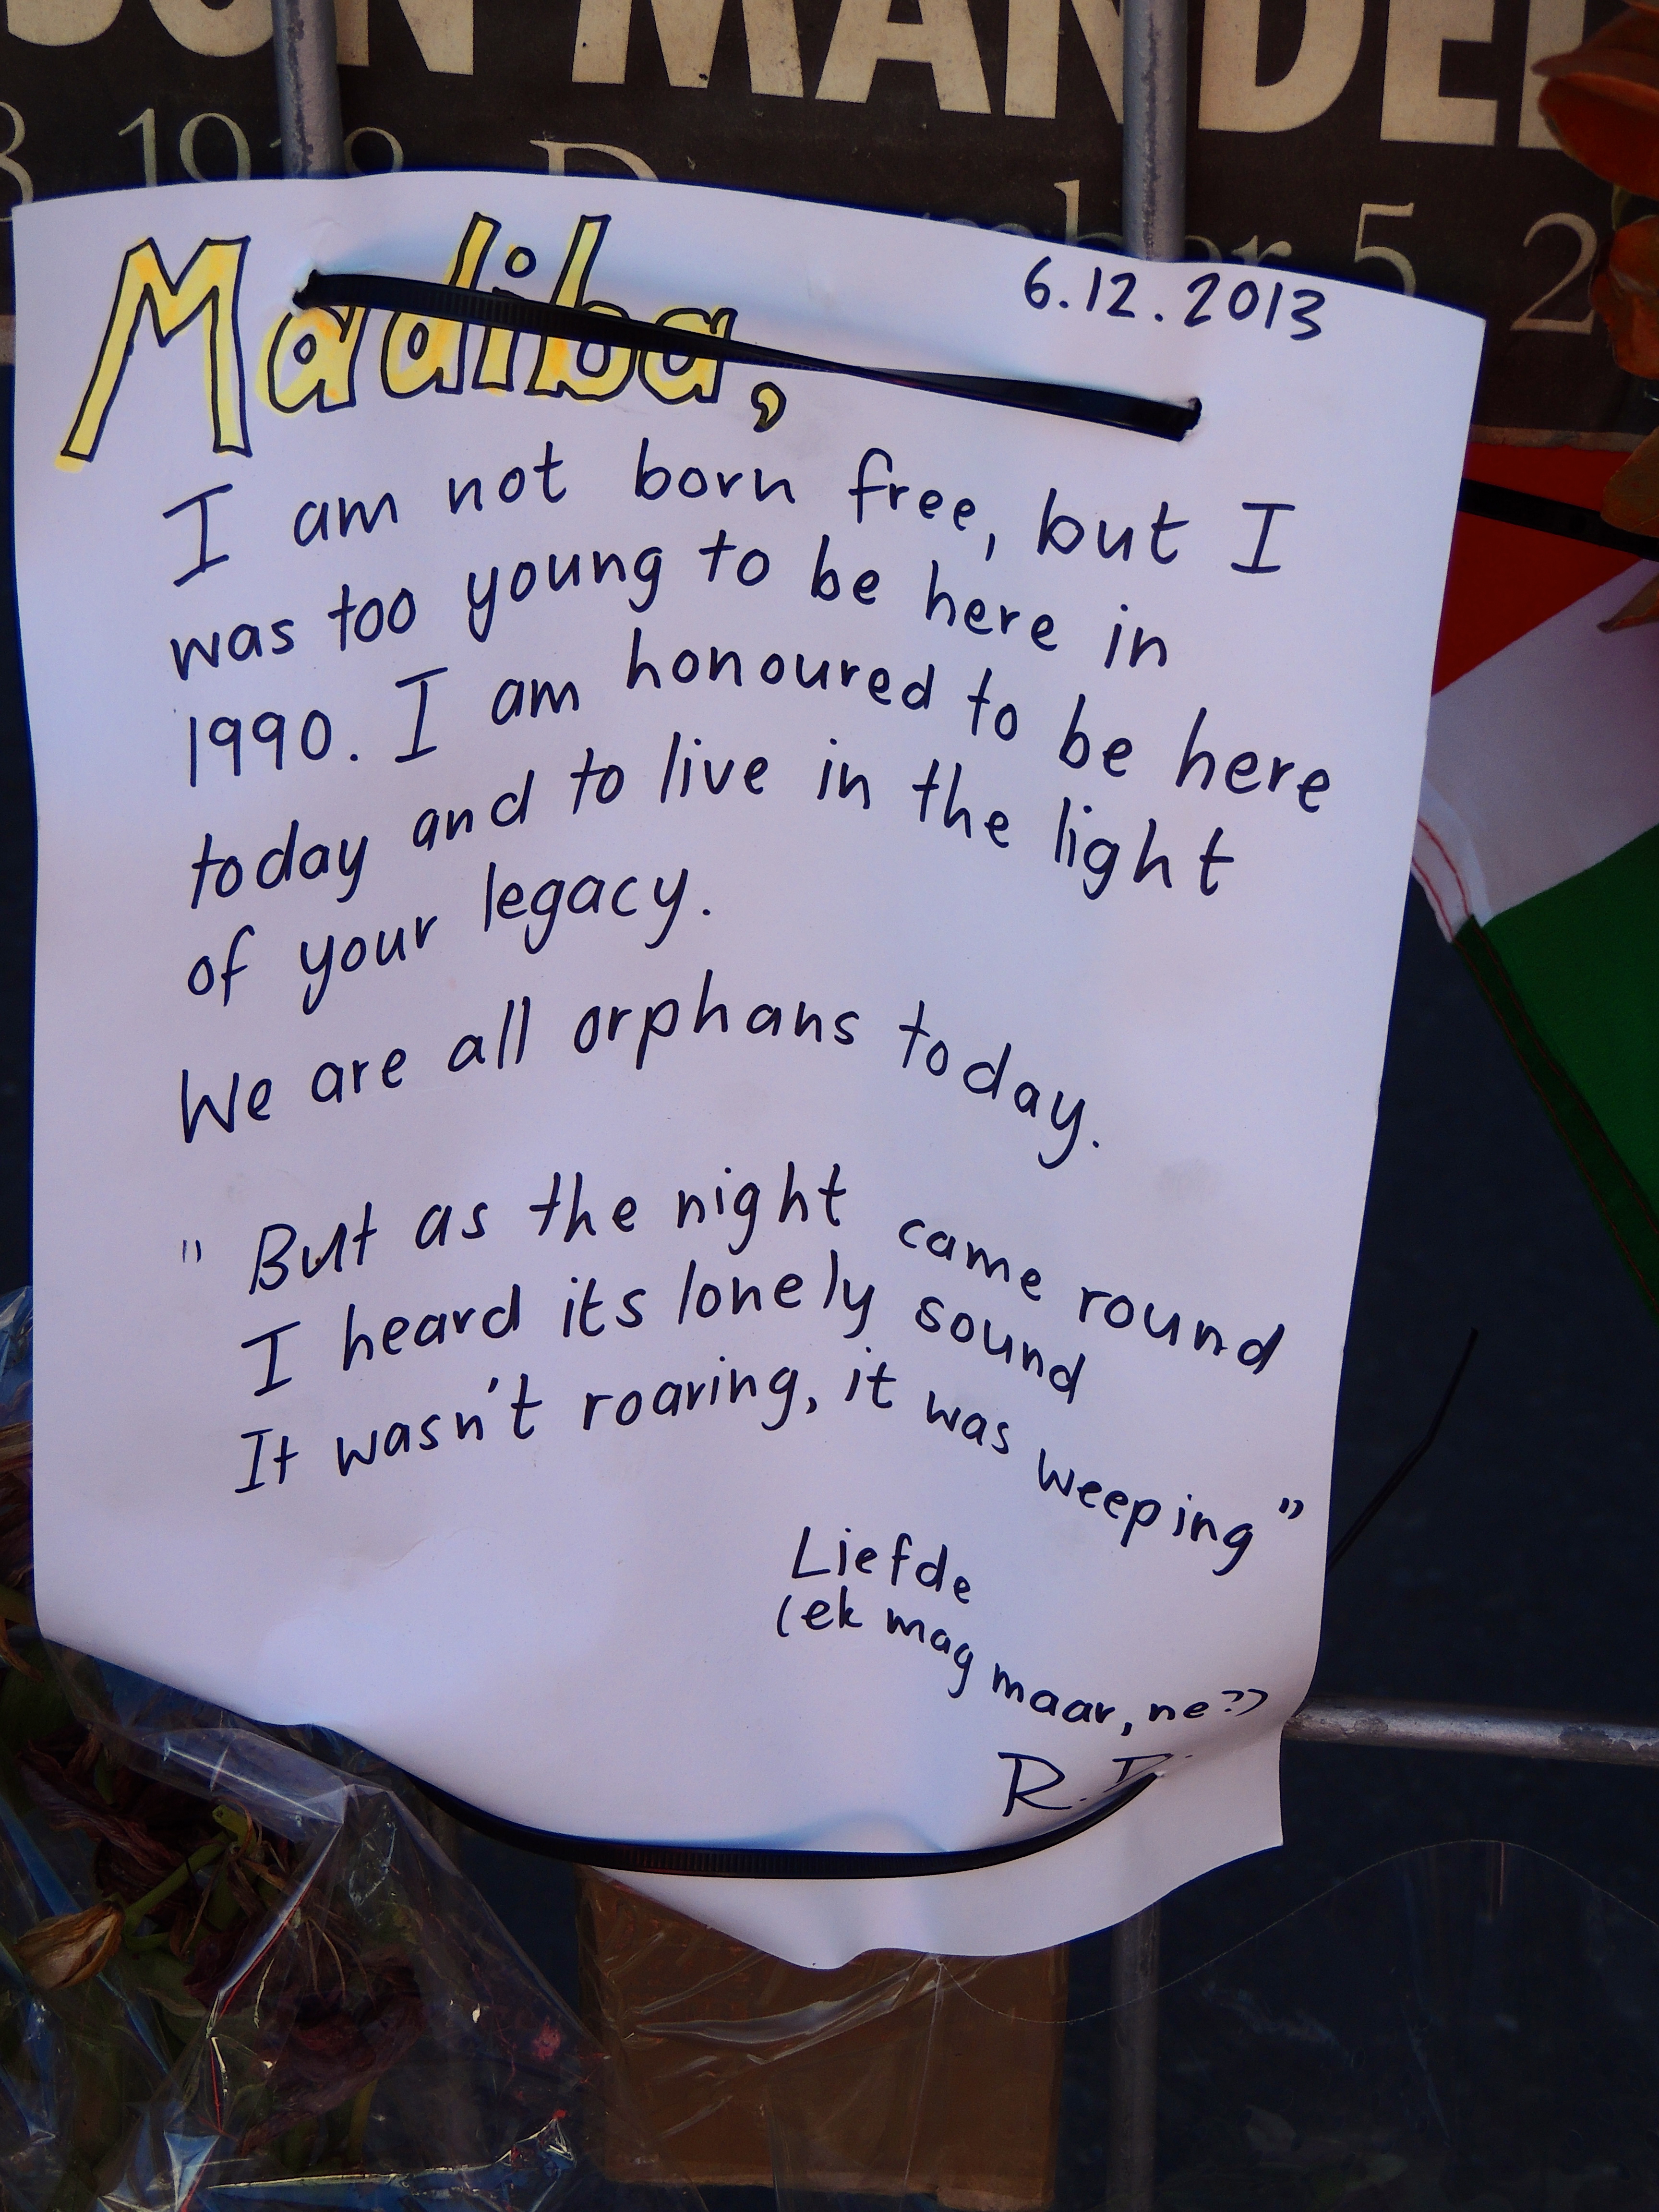 ON MANDEL
1918 December 5, 2
Madiba,
6.12.2013
I am not born free, but I
was too young to be here in
1990. I am honoured to be here
today and to live in the light
of your legacy.
We are all orphans today.
" But as the night came round
I heard its lonely sound
It wasn't roaring, it was weeping"
Liefde
(ek mag maar, ne?)
R.